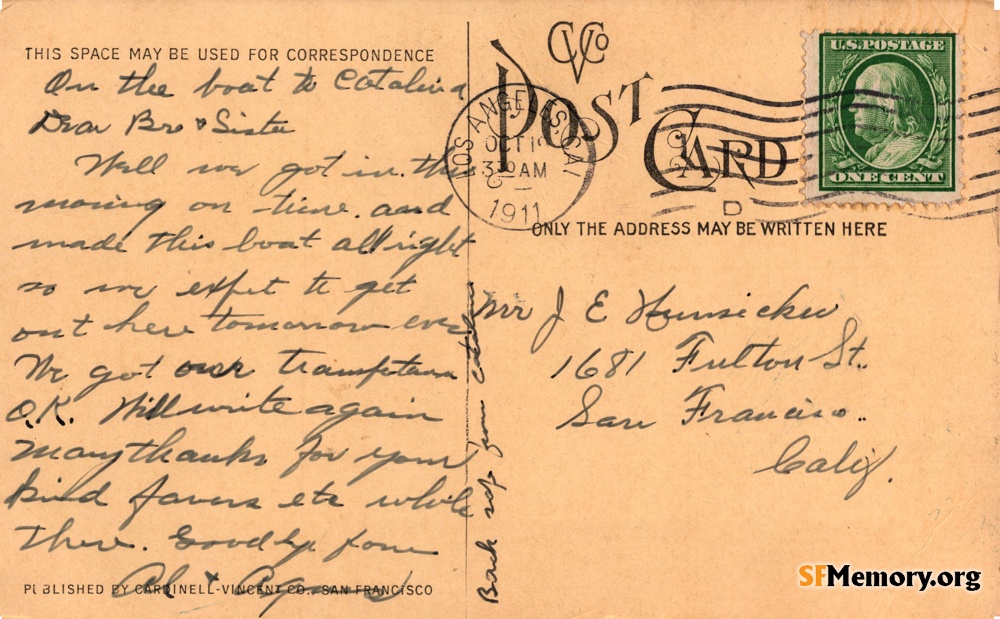 THIS SPACE MAY BE USED FOR CORRESPONDENCE
On the boat to Catalina
Dear Bro & Sister
Well we got in this
morning on time and
made this boat all right
so we expet to get
out here tomorrow eve
We got our
O.K. Will write again
Many thanks for your
kind favors etc while
there. Goodby from
Al & Agnes
PUBLISHED BY CARDINELL-VINCENT CO., SAN FRANCISCO
Back from
CVCo
POST CARD
LOS ANGELES, CAL
OCT
3 AM
1911
D
U.S. POSTAGE
ONE CENT
ONLY THE ADDRESS MAY BE WRITTEN HERE
Mr J E Hunsicker
1681 Fulton St.
San Francisco.
Calif.
SFMemory.org